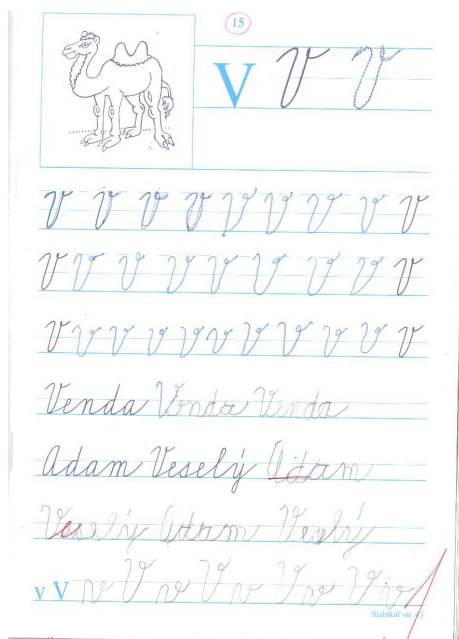 15
V V V
V V V V V V V V V
V V V V V V V V V
V V V V V V V V V V V
Venda Vonda Venda
Adam Veselý Adam
Veselý Adam Veselý
v V v V v V v V v V v
Slabikář str. 43